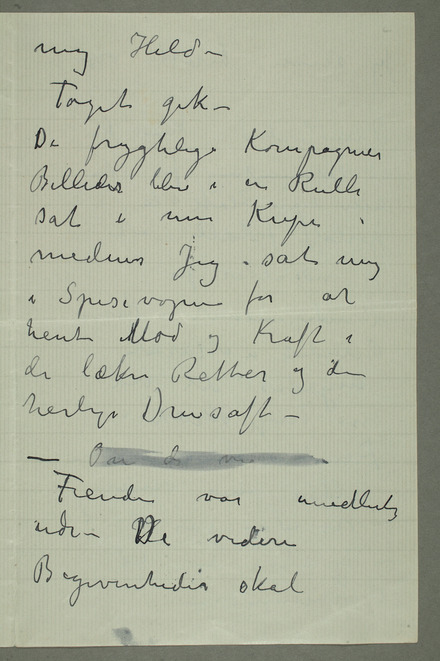 mig Held –
Toget gik –
De frygtelige Kompagnier
Billeder blev i en Rulle
sat i min Kupe
medens Jeg – satte mig
i Spisevognen for at
hente Mod og Kraft i
de lækre Retter og den
herlige Druesaft –
—
Fienden var
uden – De videre
Begivenheder skal